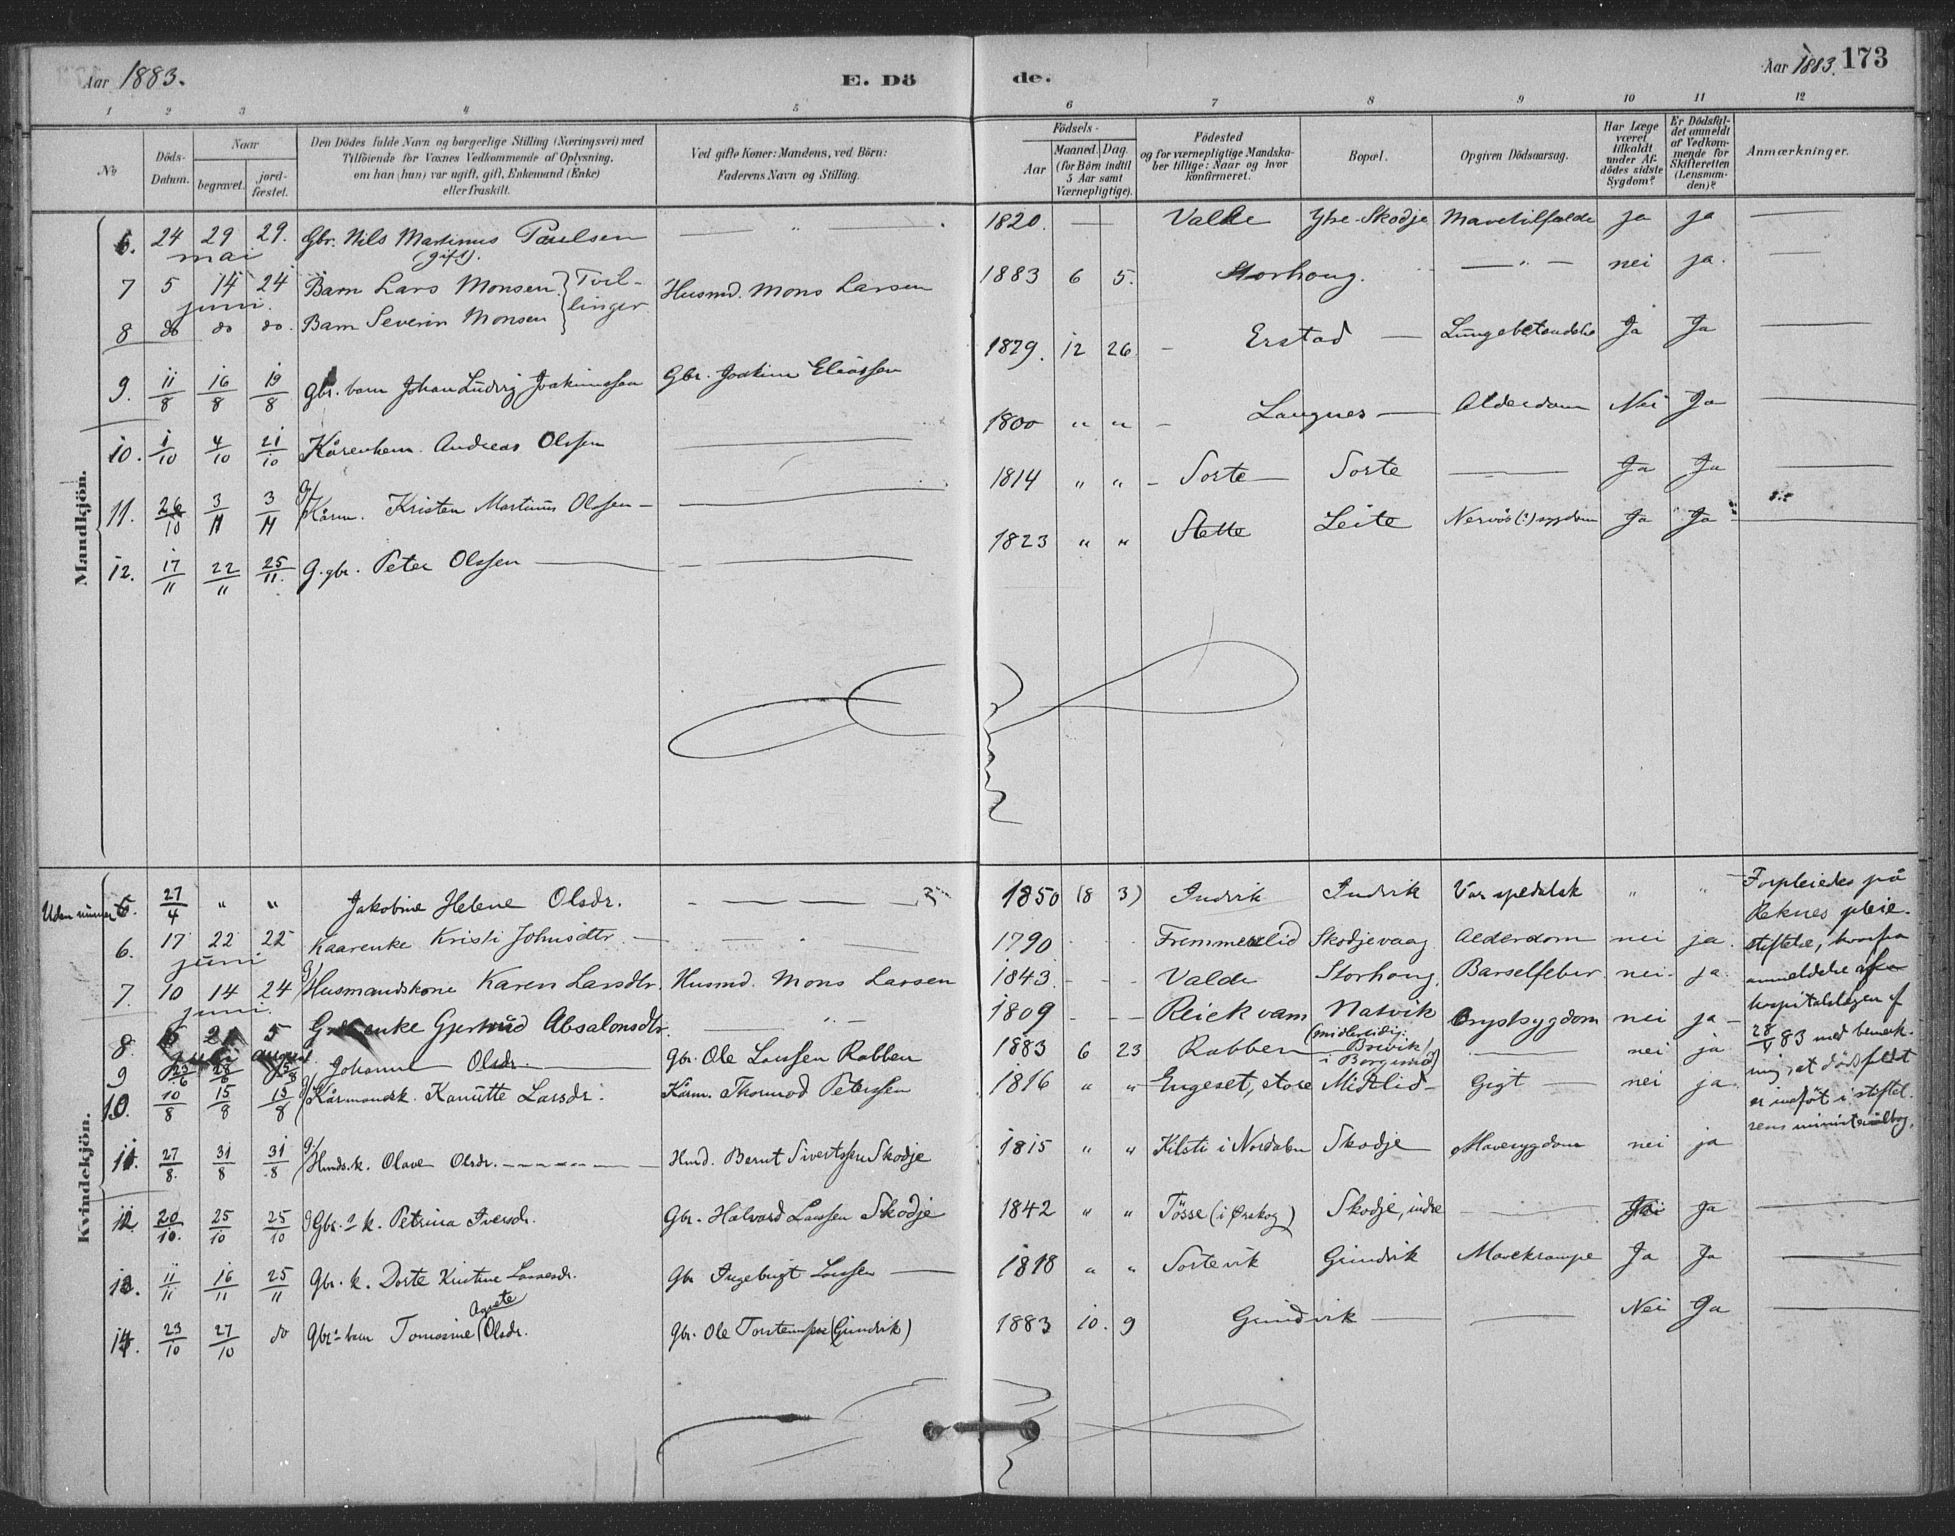 Aar 1883. E. Dö de. Aar 1883. 173
1 2 3 4 5 6 7 8 9 10 11 12
No
Döds-Datum.
Naar
begravet.
jord-fæstet.
Den Dödes fulde Navn og borgerlige Stilling (Næringsvei) med
Tilföiende for Voxnes Vedkommende af Oplysning,
om han (hun) var ugift, gift, Enkemand (Enke)
eller fraskilt.
Ved gifte Koner: Mandens, ved Börn:
Faderens Navn og Stilling.
Födsels-
Aar
Maaned. Dag.
(for Börn indtil
5 Aar samt
Værnepligtige).
Födested
og for værnepligtige Mandska-
ber tillige: Naar og hvor
konfirmeret.
Bopæl.
Opgiven Dödsaarsag.
Har Læge
været
tilkaldt
under Af-
dödes sidste
Sygdom?
Er Dödsfal-
det anmeldt
af Vedkom-
mende for
Skifteretten
(Lensman-
den)?
Anmærkninger.
Mandkjön.
6. 24 29 29. Gbr. Nils Martinus Paulsen — " — 1820. — — Valde Ytre-Skodje Mavetilfælde ja ja —
mai (gift).
7 5 14 24 Barn Lars Monsen } Tvil- Husmd. Mons Larsen 1883 6 5. Storhoug. — " — nei ja. —
juni. linger
8 do do do. Barn Severin Monsen
9. 11/8 16/8 19/8 Gbr. barn Johan Ludvig Joakimssen Gbr. Joakim Eliassen 1879. 12 26. — Erstad — Lungebetændelse Ja Ja —
10. 1/10 4/10 21/10 Kårenkem. Andreas Olssen — 1800 " " — Langnes — Alderdom Nei Ja —
11. 26/10 3/11 3/11 g/ Kårm. Kristen Martinus Olssen — — 1814 " " — Sorte — Sorte — Ja Ja —
12. 17/11 22/11 25/11. G. gbr. Peter Olssen — — 1823 " " Stette Leite Nervös(?) sygdom Ja Ja —
Kvindekjön.
Uden numer 5. 27/4 " " Jakobine Helene Olsdr. — — — 1850 (8 3) Indvik Indvik Var spedalsk " " Forpleiedes på
Reknes pleie-
stiftelse, hvorfra
anmeldelse
hospitalslægen af
28/ 83 med bemærk-
ning, at dödsfaldet
er indfört i stiftel-
sens ministerialbog.
6. 17 22 22 Kaarenke Kristi Johnsdtr. — " 1790 Fremmerlid Skodjevaag Alderdom nei ja.
juni
7. 10 14 24 g/ Husmandskone Karen Larsdtr. Husmd. Mons Larsen 1843. Valde Storhoug. Barselfeber nei. ja
juni.
8. 21 5 Gjertrud Absalonsdtr. — " — 1809 Reiekvam Natvik Brystsygdom nei ja —
august (midlertidig:
9 23/6 28/6 Johanne Olsdr. — Gbr. Ole Larssen Rabben 1883 6 23 Rabben — Brevik — nei ja
i Borgund)
10. 10/8 15/8 15/8 g/ Kårmandsk. Kanutte Larsdr. Kårm. Thormod Peterssen 1816 " " Engeset, store Midtlid — Gigt — nei ja
11. 27/8. 31/8 31/8 g/ Husds.k. Olave Olsdr. — — Hmd. Bernt Sivertssen Skodje 1815 " " Kilsti i Nordalen Skodje Mavesygdom nei ja
12. 20/10. 25/10 25/10 g Gbr. k. Petrina Iversdr. Gbr. Halvard Larssen Skodje 1842 " " Tösse (i Ørskog) Skodje, indre — Ja —
13. 11/11 16/11 25/11 Gbr. k. Dorte Kristine Larsesdr. Gbr Ingebrigt Larssen — 1818 " " Sortevik Grindvik Mavekrampe Ja Ja —
Agnete
14. 23/10 27/10 do Gbr. barn Tomasine (Olsdr. Gbr. Ole Torstenssen (Grindvik) 1883 10. 9 Grindvik — — Nei Ja —